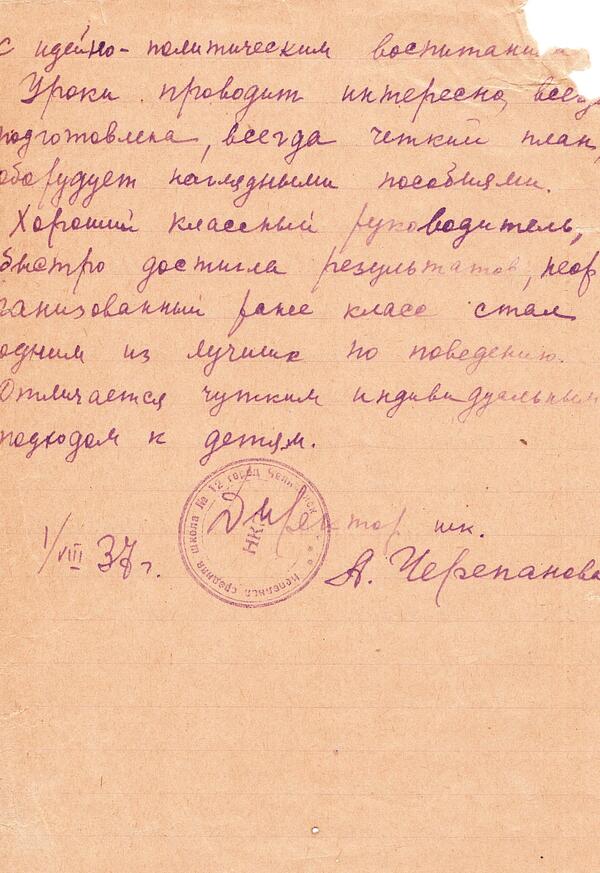 с идейно-политическим воспитанием
Уроки проводит интересно, всегда
подготовлена, всегда четкий план,
оборудует наглядными пособиями.
Хороший классный руководитель,
быстро достигла результатов, неор
ганизованный ранее класс стал
одним из лучших по поведению.
Отличается чутким индивидуальным
подходом к детям.
Директор шк.
1/VIII 37 г.
А. Черепанова
средняя школа № 12 город
НК